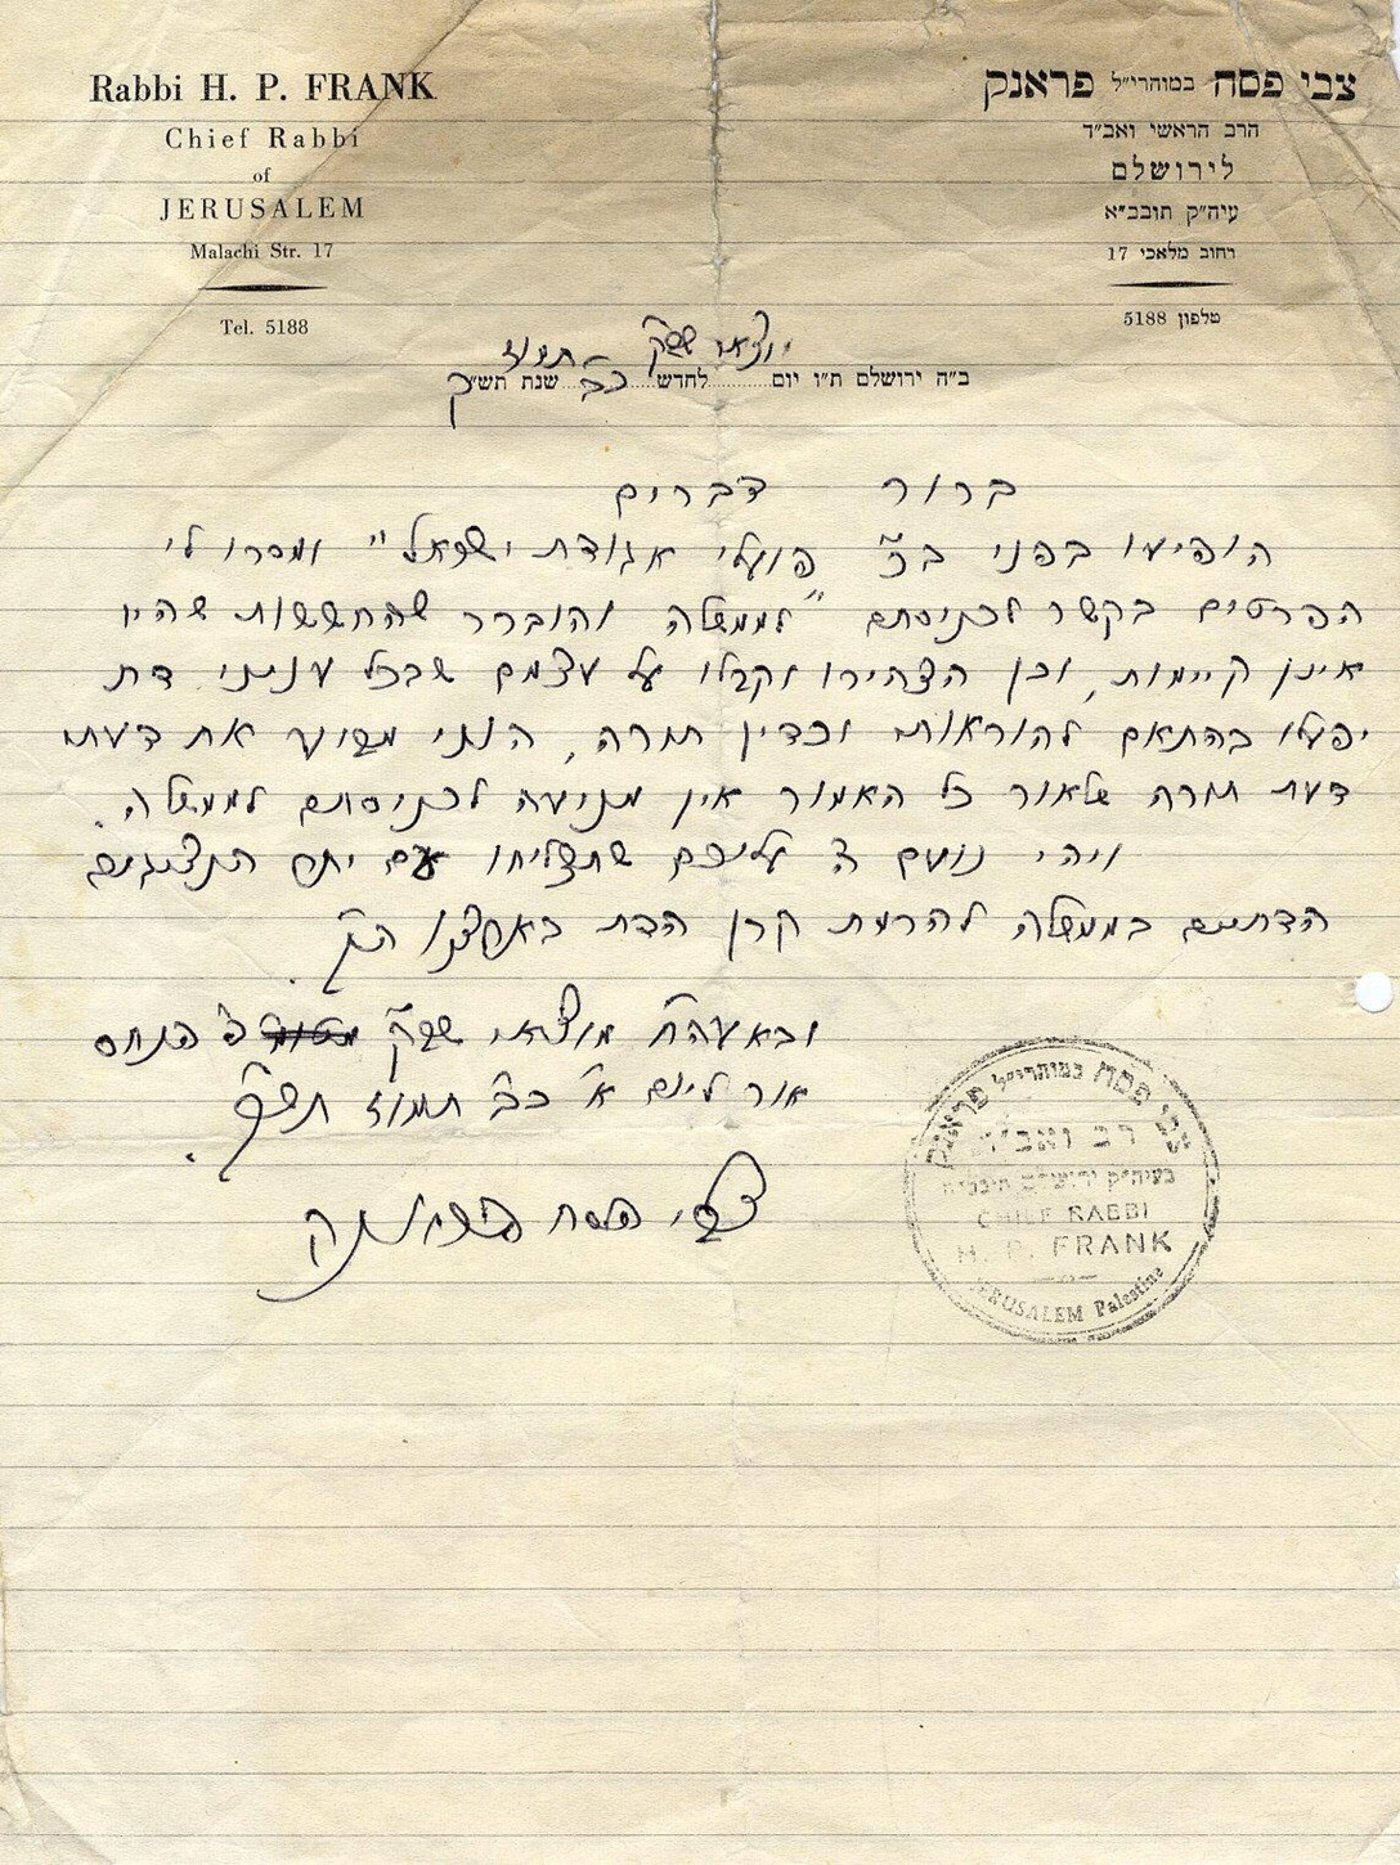 Rabbi H. P. FRANK
Chief Rabbi
of
JERUSALEM
Malachi Str. 17
Tel. 5188
צבי פסח במוהרי״ל פראנק
הרב הראשי ואב״ד
לירושלם
עיה״ק תובב״א
רחוב מלאכי 17
טלפון 5188
ב״ה ירושלם ת״ו יום מוצאי שב״ק לחדש כ״ב תמוז שנת תש״ך
ברור דברים
הופיעו בפני ב״כ פועלי אגודת ישראל״ ומסרו לי
הפרטים בקשר לכניסתם ״לממשלה והוברר שהחששות שהיו
אינן קיימות, וכן הצהירו וקבלו על עצמם שבכל עניני דת
יפעלו בהתאם להוראות וכדין תורה, הנני מביע את דעתי
דעת תורה שלאור כל האמור אין מניעה לכניסתם לממשלה.
ויהי נועם ה׳ עליכם שתצליחו עם יתר הנציגים
הדתיים בממשלה להרמת קרן הדת בארצנו הק׳.
ובאעה״ח מוצאי שב״ק פ׳ פנחס
אור ליום א׳ כ״ב תמוז תש״ך.
צבי פסח פראנק
צבי פסח במוהרי״ל פראנק
רב ואב״ד
בעיה״ק ירושלם תובב״א
CHIEF RABBI
H. P. FRANK
JERUSALEM Palestine